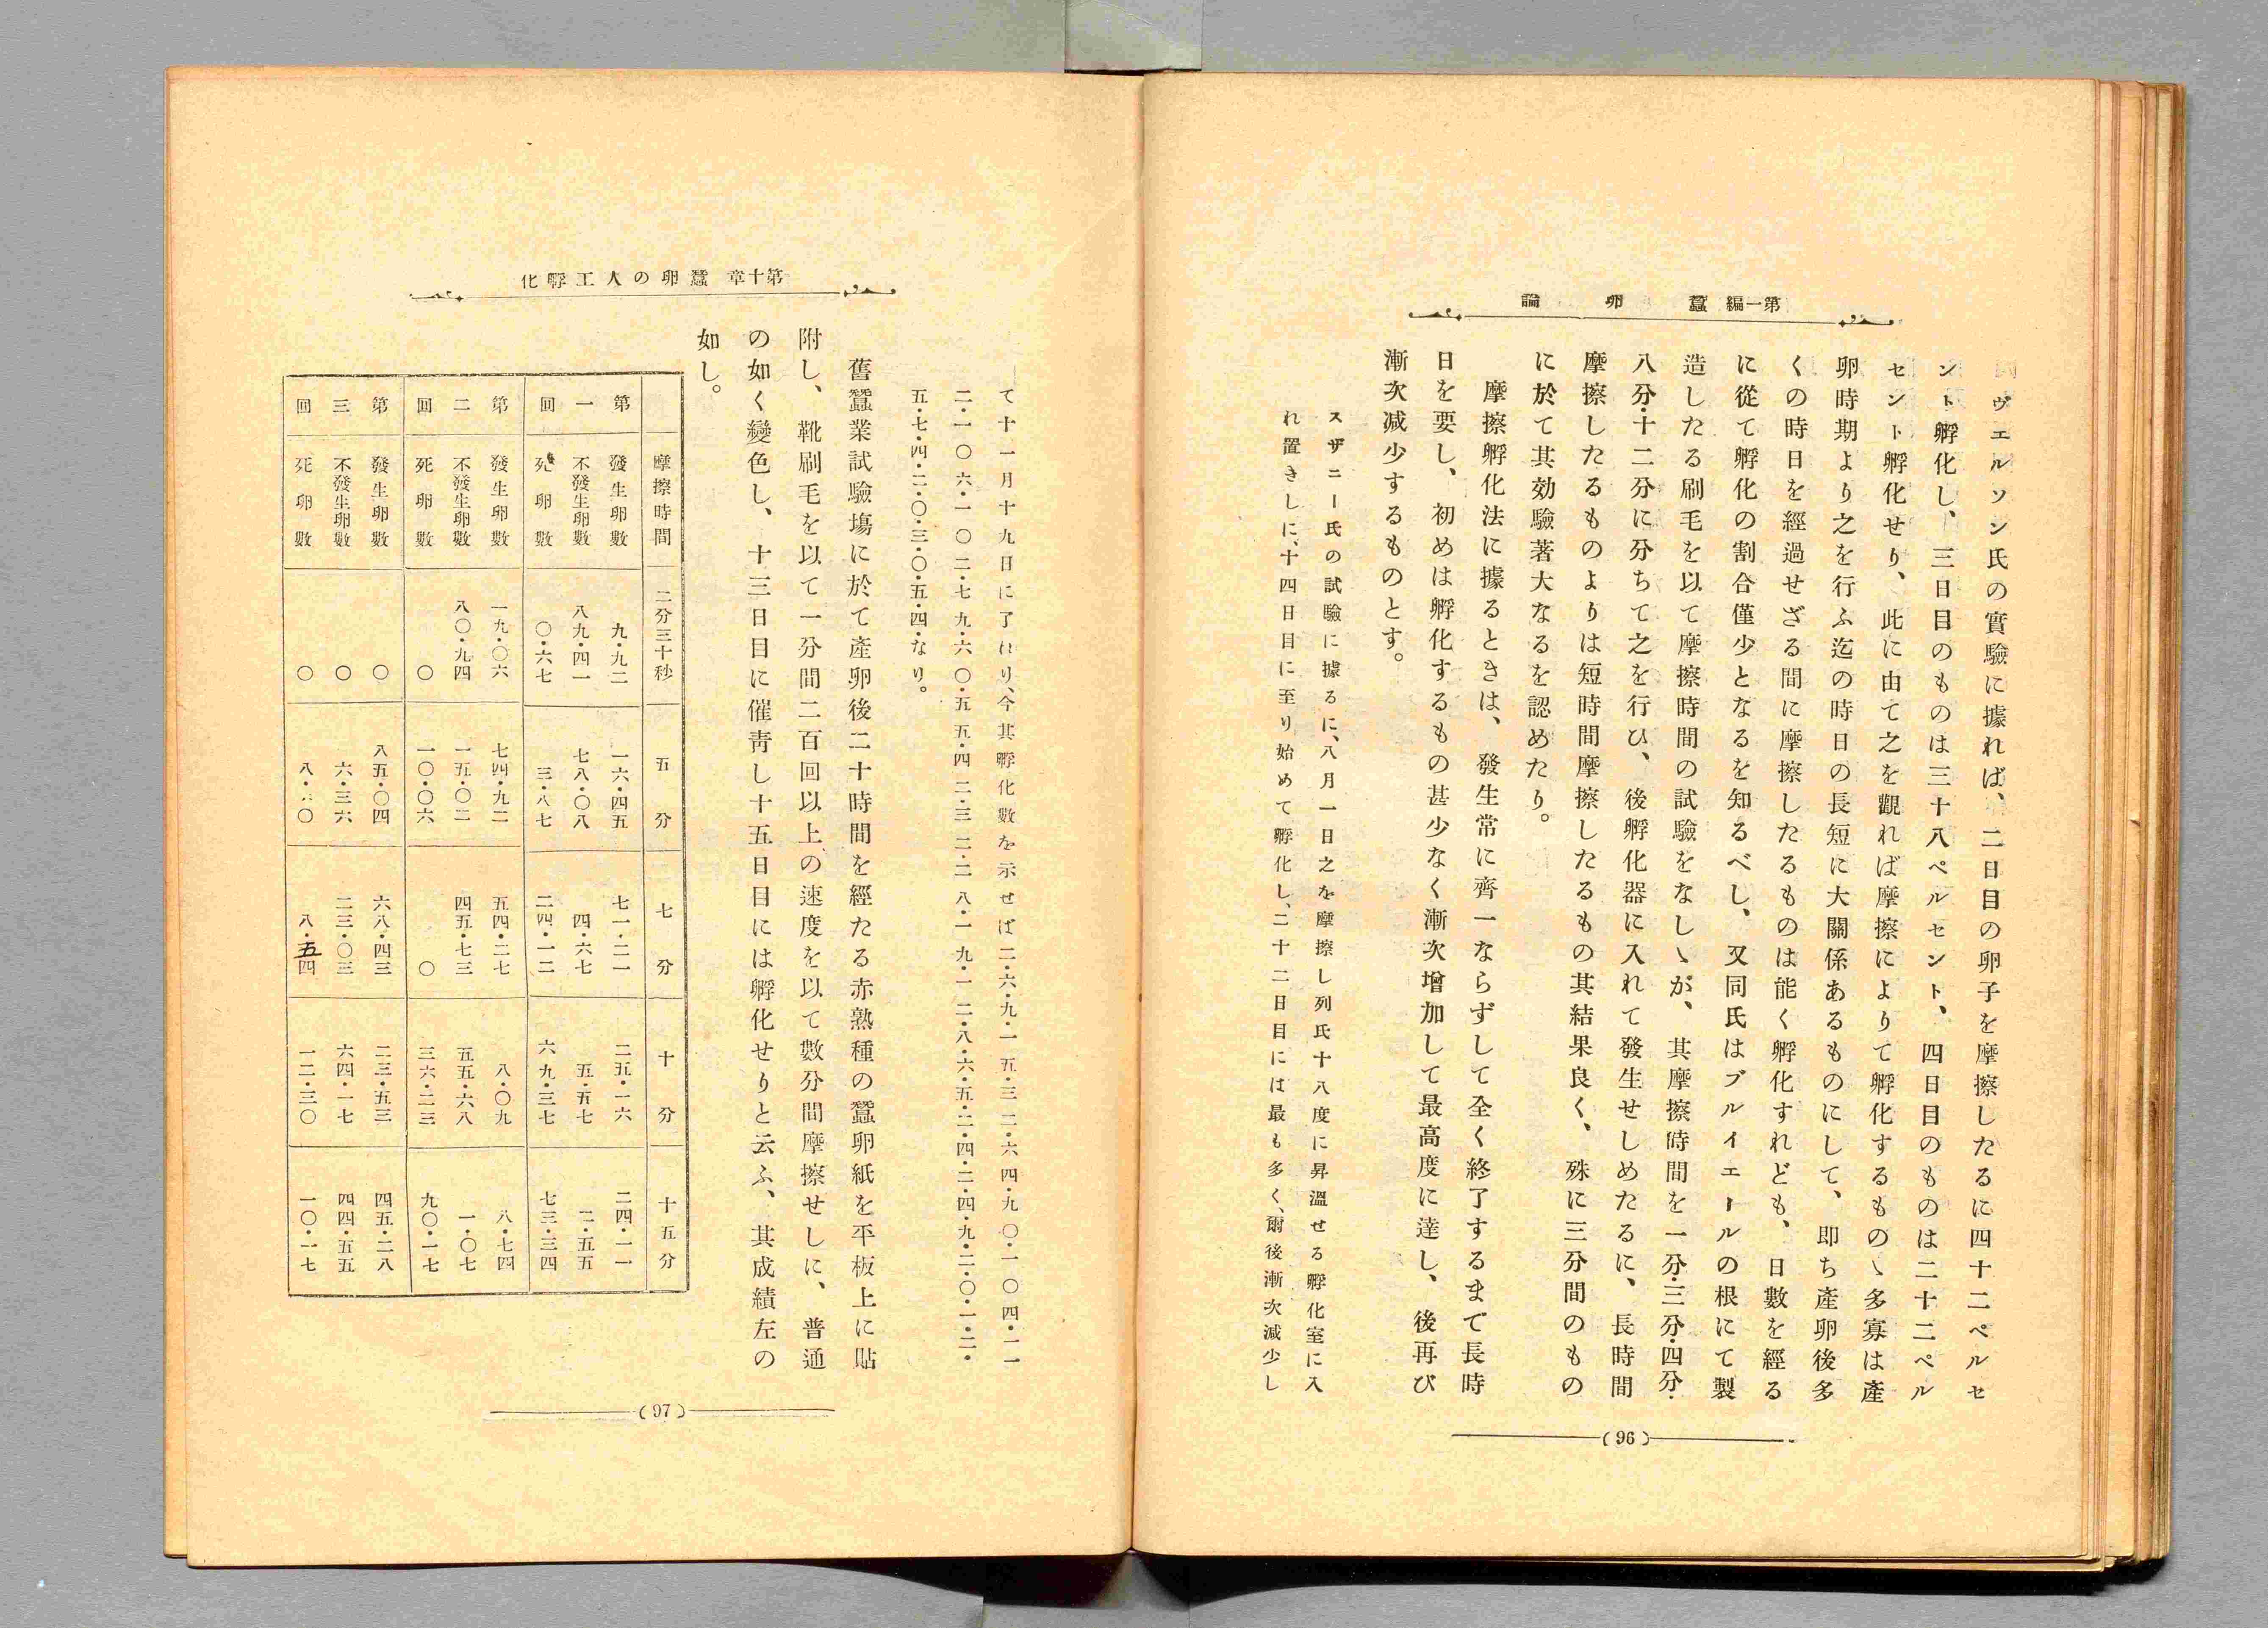 第一編　蠶卵論
ヴエルソン氏の實驗に據れば、二日目の卵子を摩擦したるに四十二ペルセ
ント孵化し、三日目のものは三十八ペルセント、四日目のものは二十二ペル
セント孵化せり、此に由て之を觀れば摩擦によりて孵化するものゝ多寡は產
卵時期より之を行ふ迄の時日の長短に大關係あるものにして、即ち產卵後多
くの時日を經過せざる間に摩擦したるものは能く孵化すれども、日數を經る
に從て孵化の割合僅少となるを知るべし、又同氏はブルイエールの根にて製
造したる刷毛を以て摩擦時間の試驗をなしゝが、其摩擦時間を一分・三分・四分・
八分・十二分に分ちて之を行ひ、後孵化器に入れて發生せしめたるに、長時間
摩擦したるものよりは短時間摩擦したるもの其結果良く、殊に三分間のもの
に於て其効驗著大なるを認めたり。
摩擦孵化法に據るときは、發生常に齊一ならずして全く終了するまで長時
日を要し、初めは孵化するもの甚少なく漸次增加して最高度に達し、後再び
漸次減少するものとす。
スザニー氏の試驗に據るに、八月一日之を摩擦し列氏十八度に昇溫せる孵化室に入
れ置きしに、十四日目に至り始めて孵化し、二十二日目には最も多く、爾後漸次減少し
(96)
第十章　蠶卵の人工孵化
て十一月十九日に了れり、今其孵化數を示せば二・六・九・一五・三二・六四・九〇・一〇四・一一
二・一〇六・一〇二・七九・六〇・五五・四二・三二・二八・一九・一二・八・六・五・二・四・二・四・九・二・〇・一・二・
五・七・四・二・〇・三・〇・五・四・なり。
舊蠶業試驗塲に於て產卵後二十時間を經たる赤熟種の蠶卵紙を平板上に貼
附し、靴刷毛を以て一分間二百回以上の速度を以て數分間摩擦せしに、普通
の如く變色し、十三日目に催靑し十五日目には孵化せりと云ふ、其成績左の
如し。
摩擦時間　二分三十秒　五分　七分　十分　十五分
第一回　發生卵數　九・九二　一六・四五　七一・二一　二五・一六　二四・一一
不發生卵數　八九・四一　七八・〇八　四・六七　五・五七　二・五五
死卵數　〇・六七　三・八七　二四・一二　六九・三七　七三・三四
第二回　發生卵數　一九・〇六　七四・九二　五四・二七　八・〇九　八・七四
不發生卵數　八〇・九四　一五・〇二　四五・七三　五五・六八　一・〇七
死卵數　〇　一〇・〇六　〇　三六・二三　九〇・一七
第三回　發生卵數　〇　八五・〇四　六八・四三　二三・五三　四五・二八
不發生卵數　〇　六・三六　二三・〇三　六四・一七　四四・五五
死卵數　〇　八・六〇　八・五四　一二・三〇　一〇・一七
(97)